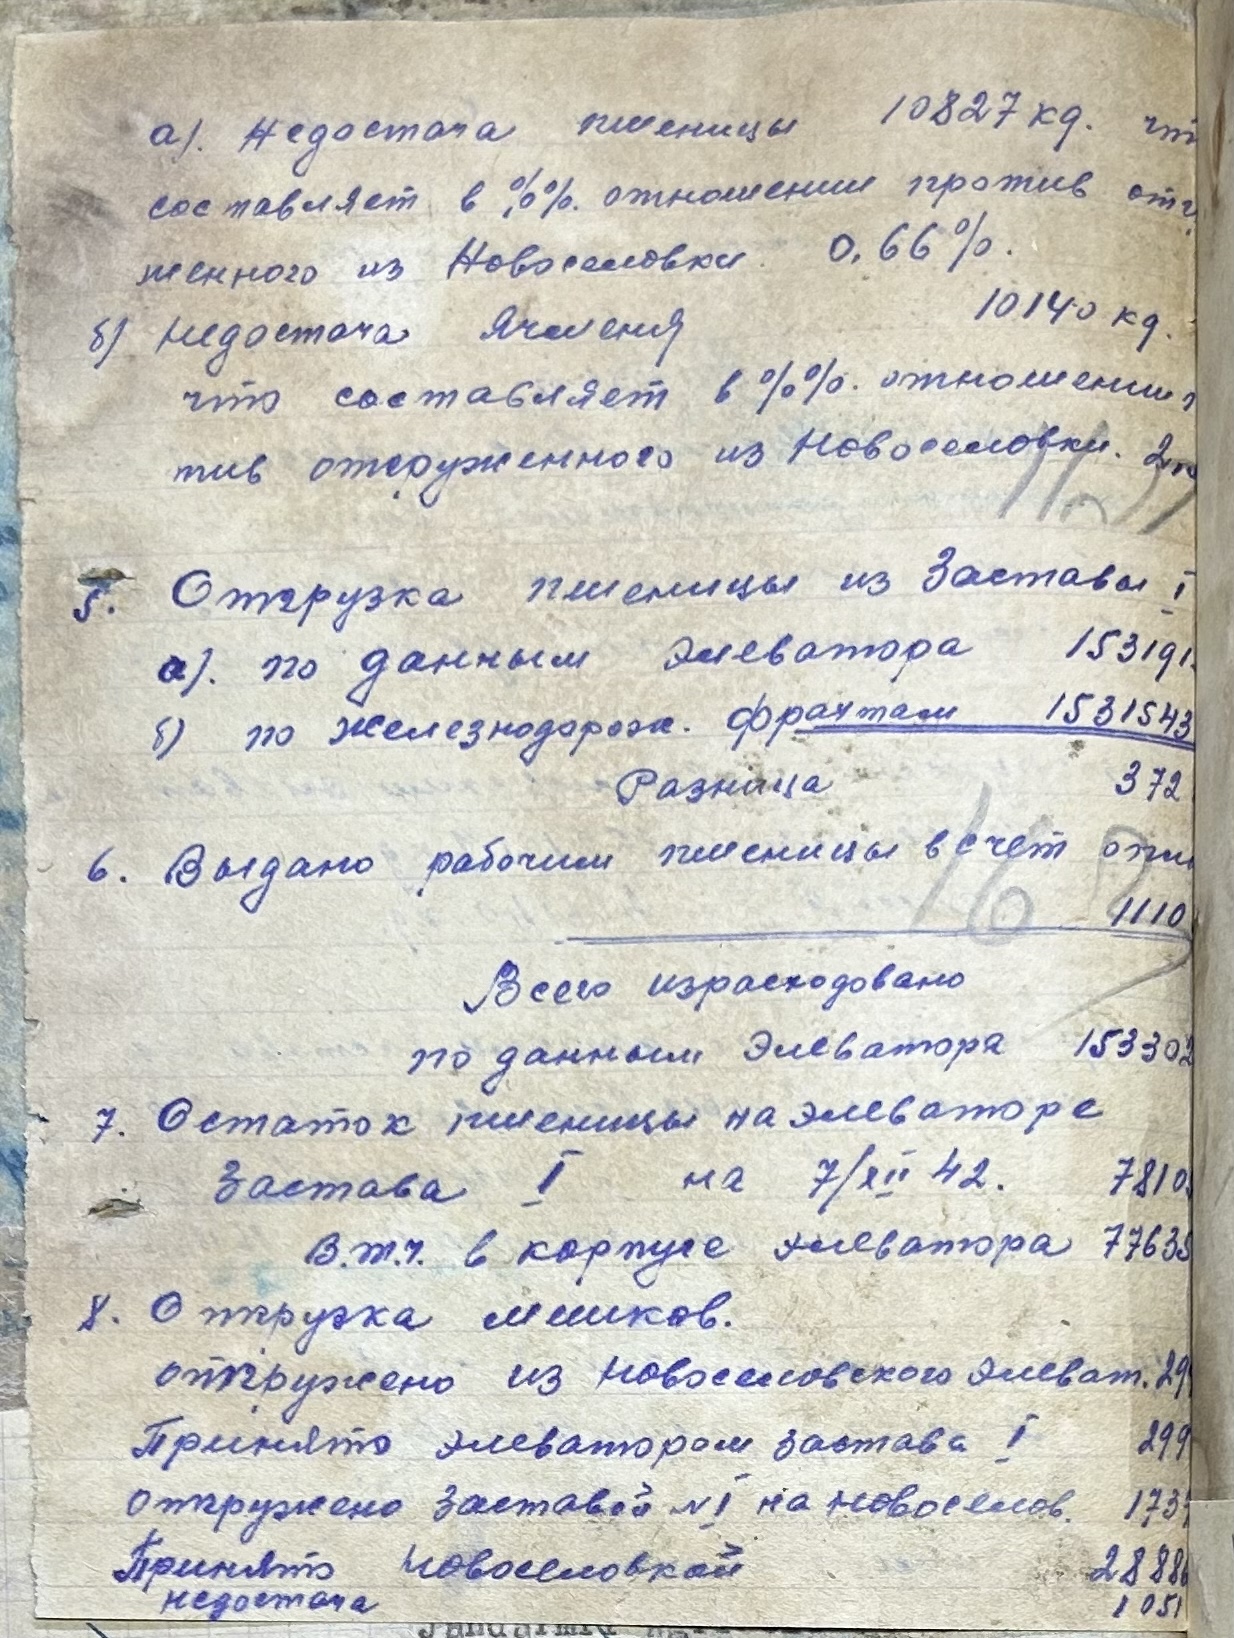 а). Недостача пшеницы 10827 кд. что
составляет в %%. отношении против отгр
женного из Новоселовки 0,66%.
б) Недостача Ячменя 10140 кд.
что составляет в %%. отношении п
тив отгруженного из Новоселовки. 2
5. Отгрузка пшеницы из Заставы I
а). по данным элеватора 153191
б) по железнодорож. фрахтам 1531543
Разница 372
6. Выдано рабочим пшеницы в счет опл
1110
Всего израсходовано
по данным Элеватора 153302
7. Остаток пшеницы на элеваторе
Застава I на 7/XII 42. 7810
В.т.ч. в корпусе элеватора 77635
8. Отгрузка мешков.
отгружено из Новоселовского Элеват. 29
Принято элеватором Застава I 299
отгружено Заставой №I на Новоселов. 173
Принято Новоселовкой 2888
недостача 1051